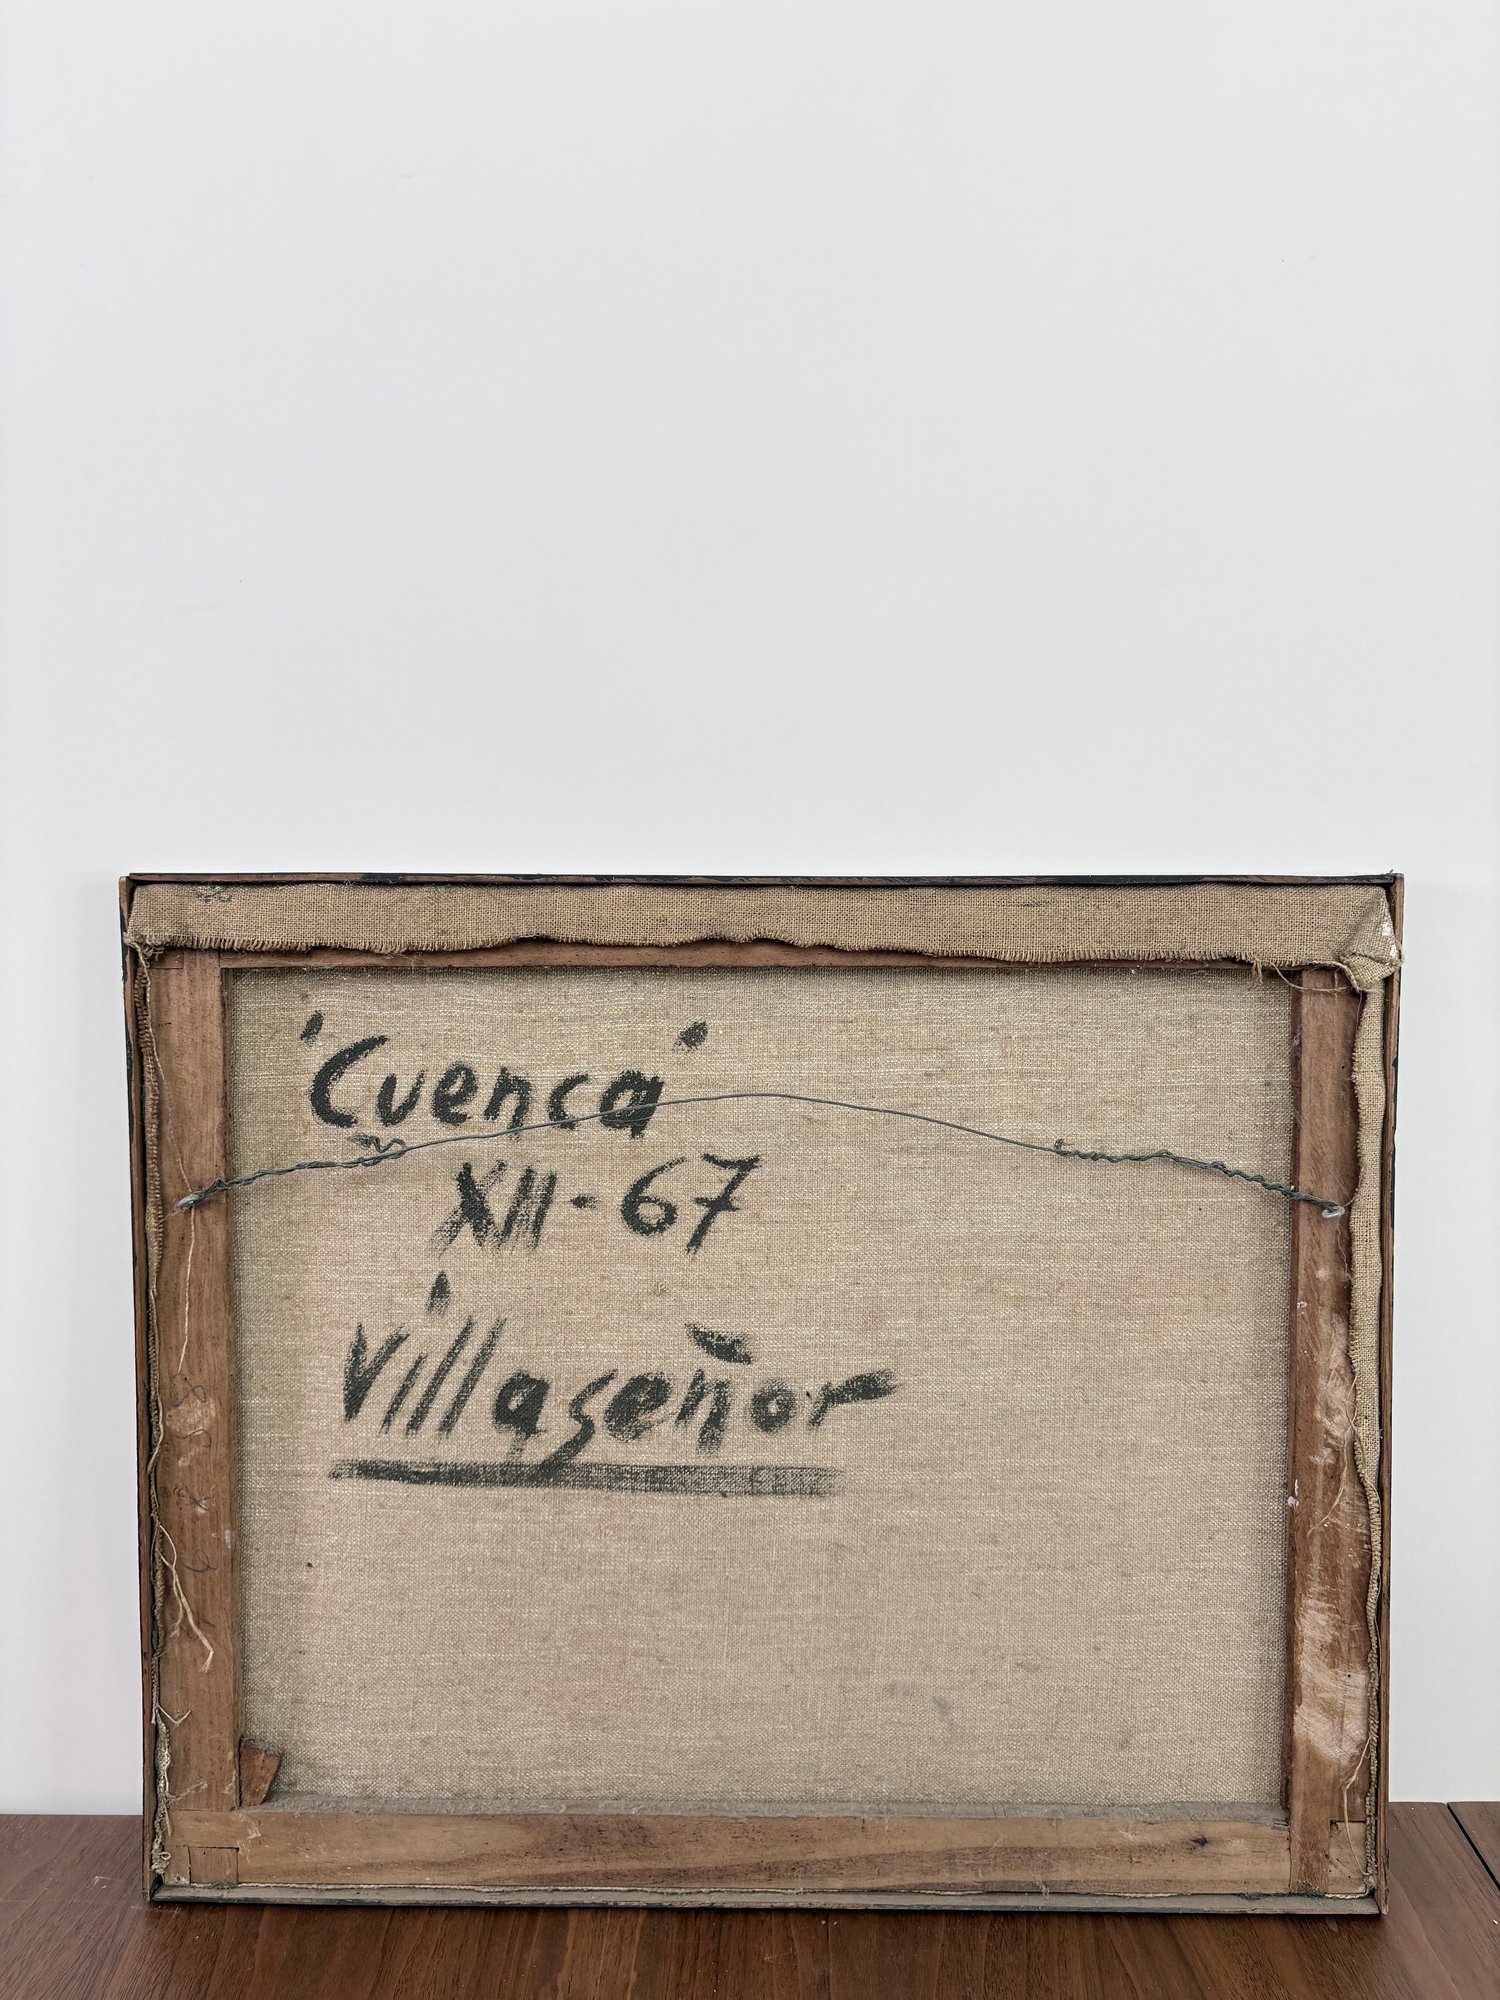 'Cuenca'
XII-67
Villaseñor